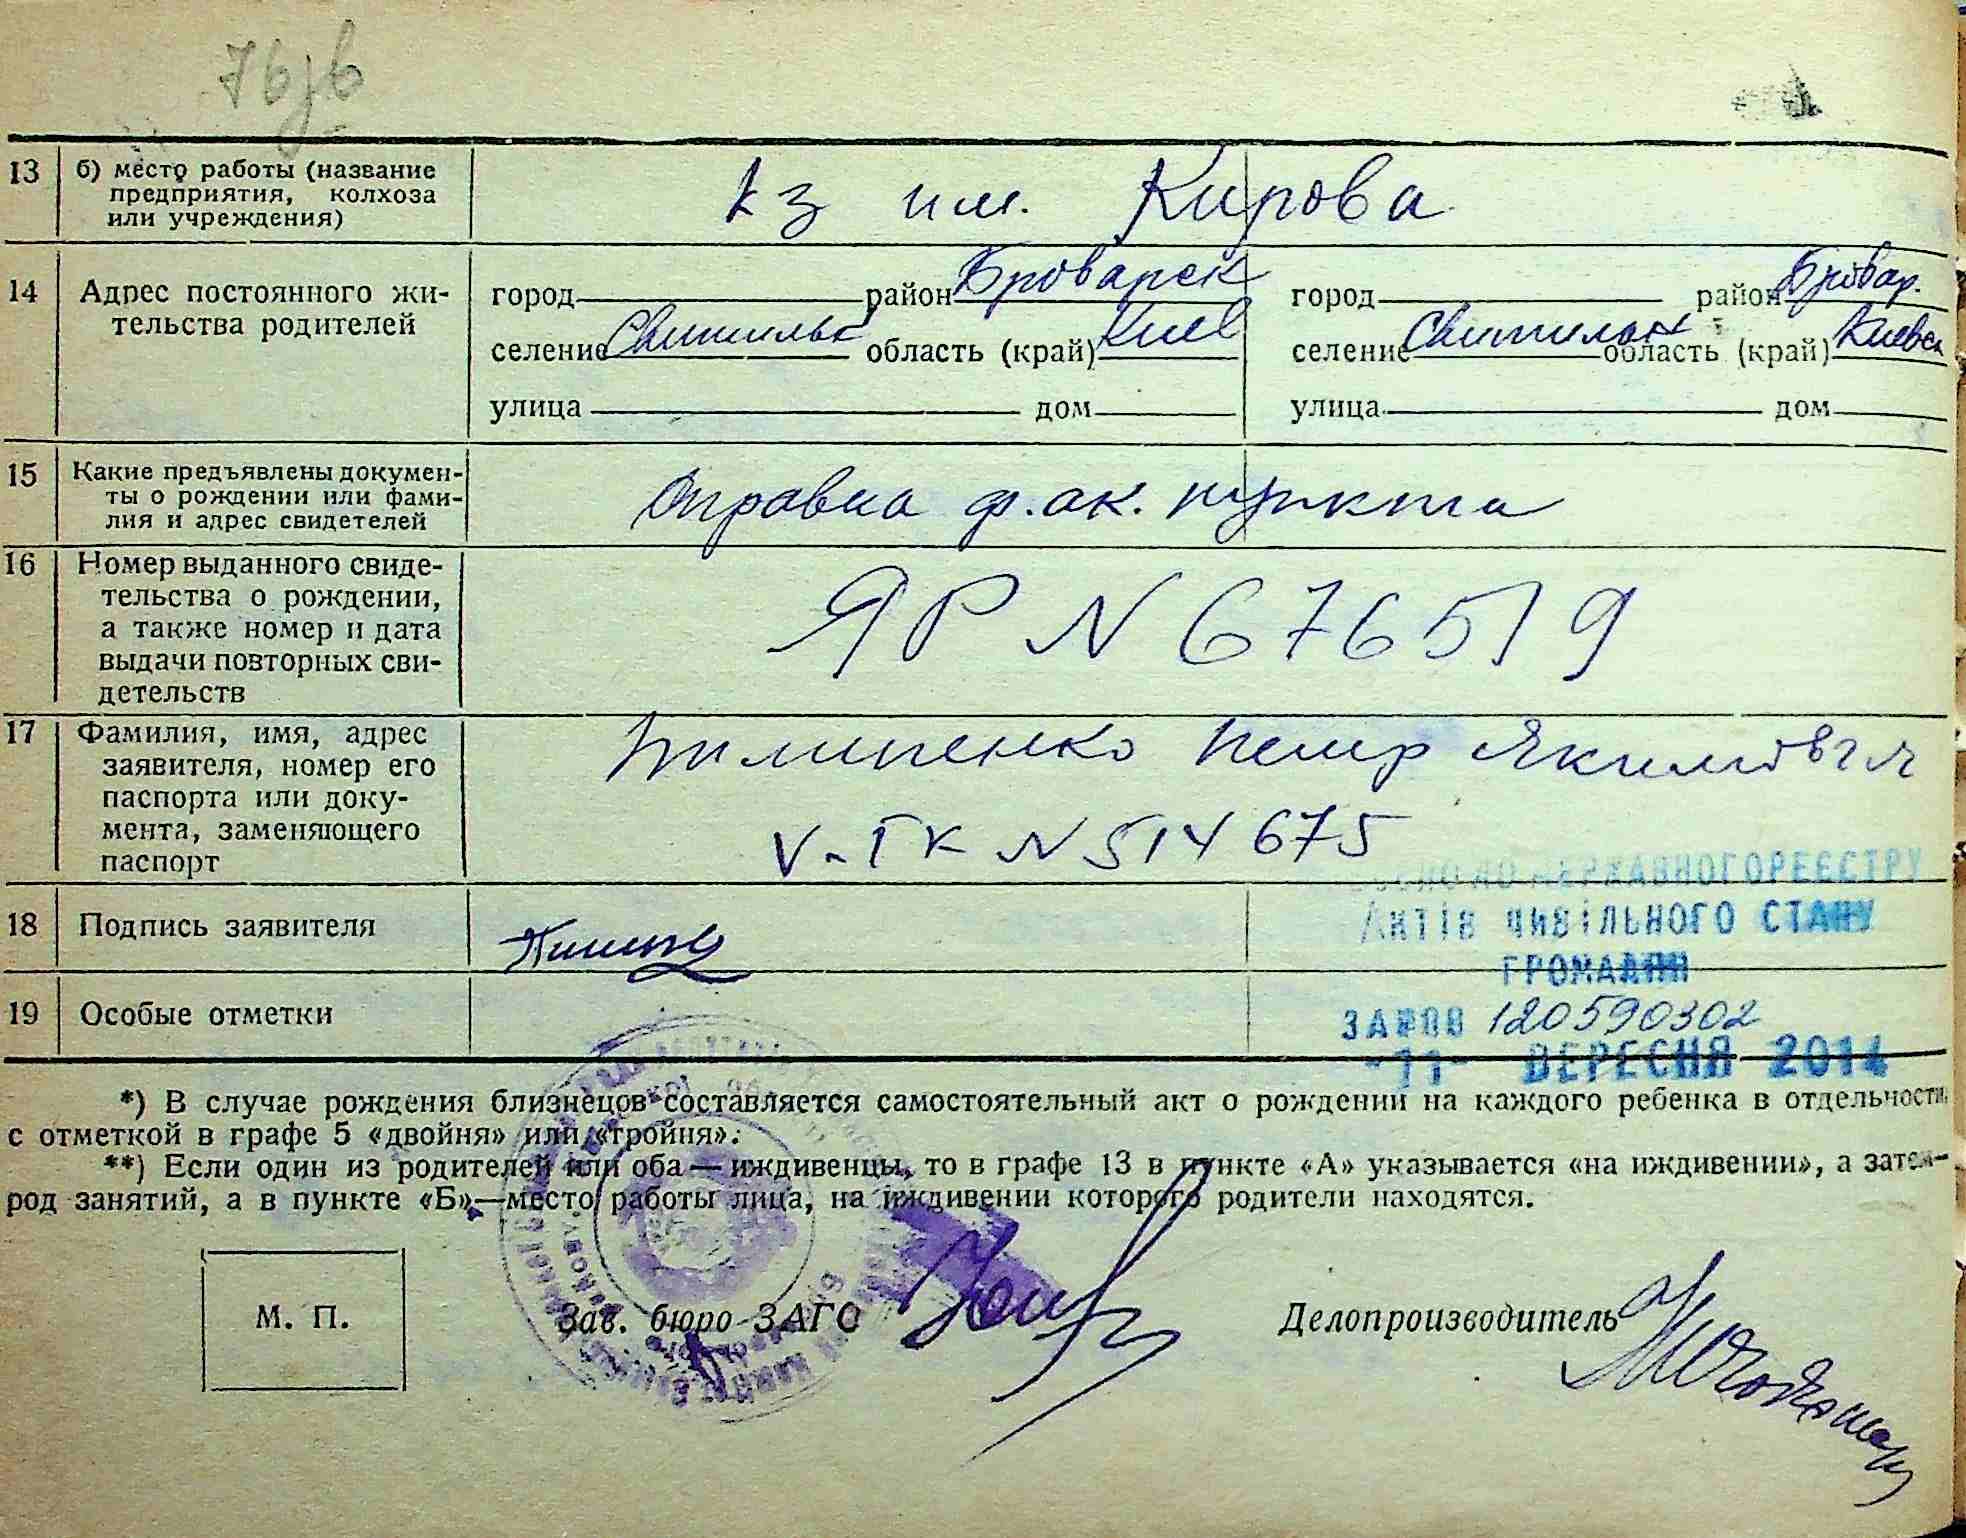 13 б) место работы (название
предприятия, колхоза
или учреждения)
кз им. Кирова
14 Адрес постоянного жи-
тельства родителей
город район Броварск
селение Свитильн область (край) Киев
улица дом
город район Бровар.
селение Свитильн область (край) Киевск
улица дом
15 Какие предъявлены докумен-
ты о рождении или фами-
лия и адрес свидетелей
Справка ф.ак. пункта
16 Номер выданного свиде-
тельства о рождении,
а также номер и дата
выдачи повторных сви-
детельств
ЯР N 676519
17 Фамилия, имя, адрес
заявителя, номер его
паспорта или доку-
мента, заменяющего
паспорт
Пилипенко Петр Якимович
V-ТК N 514675
ДЕРЖАВНОГО РЕЄСТРУ
АКТІВ ЦИВІЛЬНОГО СТАНУ
ГРОМАДЯН
18 Подпись заявителя
19 Особые отметки
ЗА №00 120590302
-11- ВЕРЕСНЯ 2014
*) В случае рождения близнецов составляется самостоятельный акт о рождении на каждого ребенка в отдельности
с отметкой в графе 5 «двойня» или «тройня».
**) Если один из родителей или оба — иждивенцы, то в графе 13 в пункте «А» указывается «на иждивении», а затем—
род занятий, а в пункте «Б»—место работы лица, на иждивении которого родители находятся.
М. П.
Зав. бюро ЗАГС
Делопроизводитель